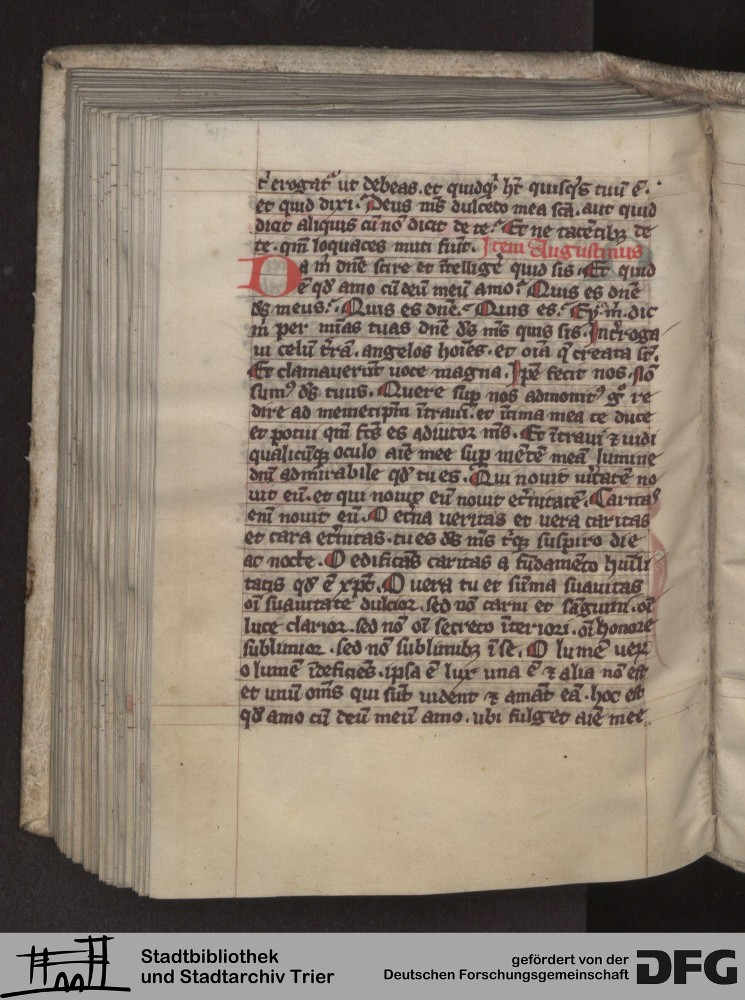 t̄ erogat᷑ ut debeas. et quidq̣ ht̄ quisq̄s tuū ē.
et quid dixi. Deus ms̄ dulcedo mea sc̄a. aut quid
dicit aliquis cū nō dicit de te. Et ne tacētibꝫ de
te. qm̄ loquaces muti sūt. Item Augustinus
Da m̄ dn̄e scire et ītelligē quid sis. Et quid
ē qd̄ amo cū deū meū amo. Quis es dn̄e
ds̄ meus. Quis es dn̄e. Quis es. m̄. dic
m̄ per mīas tuas dn̄e ds̄ ms̄ quis sis. Int̄roga
ui celū t̄rā. angelos hoīes. et oīa q̄ creata st̄.
Et clamauerūt uoce magna. Ip̄e fecit nos. Nō
sumꝰ ds̄ tuus. Quere sup̄ nos admonitꝰ gͦ re
dire ad memetip̄m ītraui. et ītima mea te duce
et potui qm̄ fc̄s es adiutor ms̄. Et ītraui ⁊ uidi
qualicūqꝫ oculo aīe mee sup̄ mētē meā lumine
dn̄i admirabile qd̄ tu es. Qui nouit ūitatē no
uit eū. et qui nouit eū nouit et̄nitatē. Caritas
enī nouit eū. O et̄na ueritas et uera caritas
et cara et̄nitas. tu es ds̄ ms̄ t̄ suspiro die
ac nocte. O edificās caritas a fūdamēto hūili
tatis qd̄ ē xp̄c. O uera tu et sūma suauitas
oī suauitate dulcior. sed nō carni et sāguini. oī
luce clarior. sed nō oī secreto īteriori. oī honore
sublimior. sed nō sublimibꝫ ī se. O lumē uerū
o lumē īdeficiēs. ipsa ē lux una ē ⁊ alia nō est
et unū om̄s qui sūt uident ⁊ amāt eā. hoc est
qd̄ amo cū deū meū amo. ubi fulget aīe mee
Stadtbibliothek
und Stadtarchiv Trier
gefördert von der
Deutschen Forschungsgemeinschaft
DFG